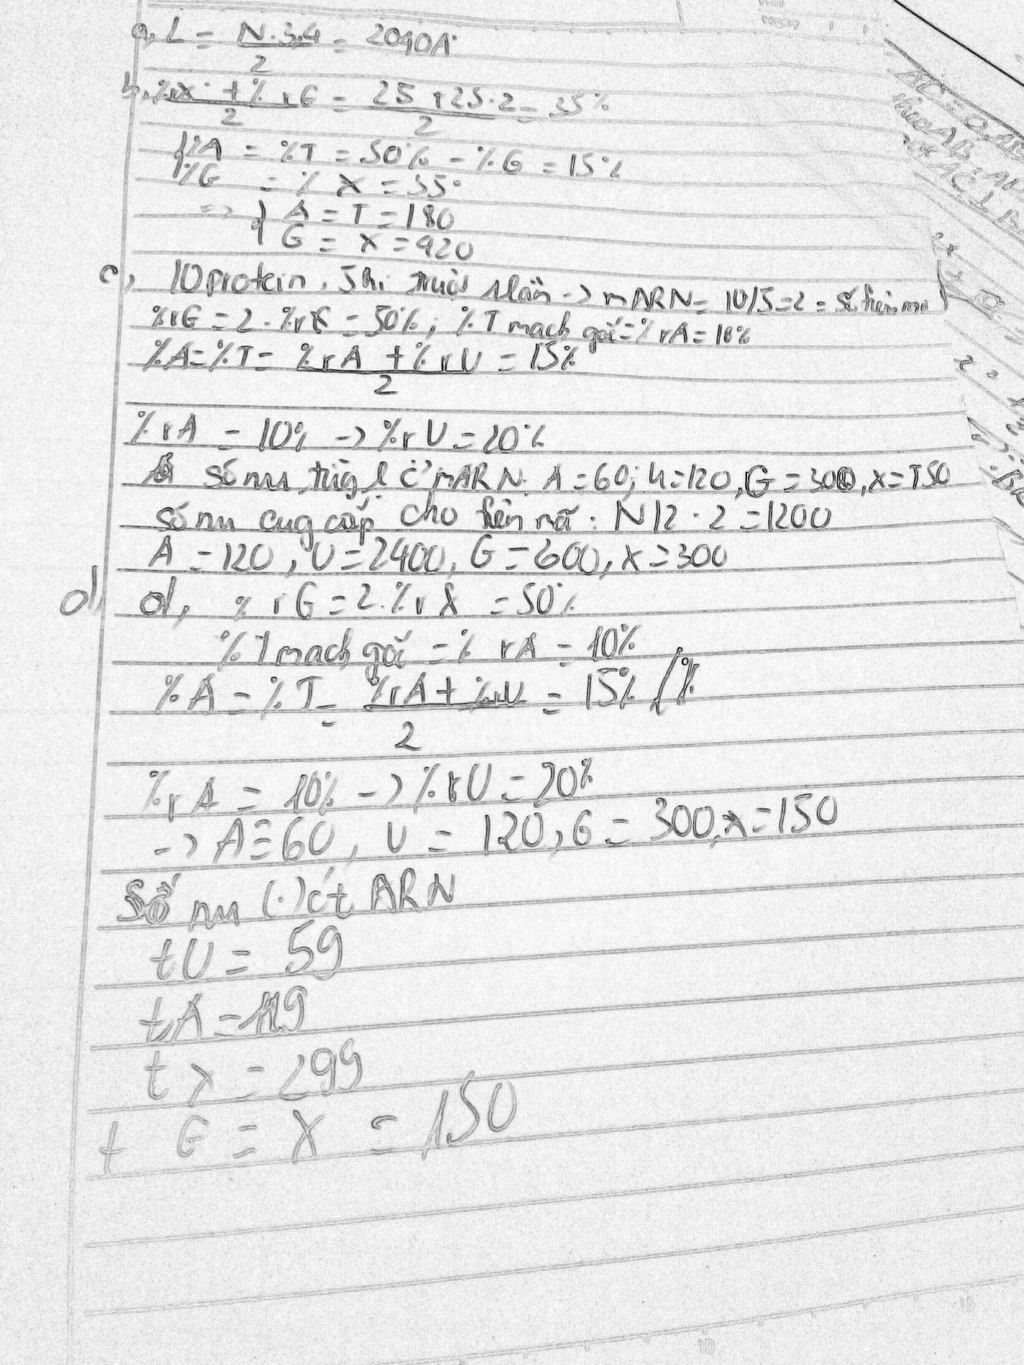 a, L = N.3,4 / 2 = 2040A°
b, %rX + %rG / 2 = 25 + 25.2 / 2 = 35%
{ %A = %T = 50% - %G = 15%
%G = % X = 35°
=> { A = T = 180
G = X = 420
c, 10 protein, 5 ri trượt 1 lần -> mARN = 10/5 = 2 = số phiên mã
%rG = 2.%rX = 50%; %T mạch gốc = %rA = 10%
%A = %T = %rA + %rU / 2 = 15%
%rA = 10% -> %rU = 20%
số nu từng l c' mARN: A = 60; U = 120, G = 300, X = 150
số nu cug cấp cho phiên mã: N/2 . 2 = 1200
A = 120, U = 2400, G = 600, X = 300
d, d, % rG = 2.%rX = 50%
%T mạch gốc = % rA = 10%
%A = %T = %rA + %rU / 2 = 15% / %
%rA = 10% -> %rU = 20%
-> A = 60, U = 120, G = 300, X = 150
Số nu (.) c't ARN
tU = 59
tA = 119
tX = 299
t G = X = 150